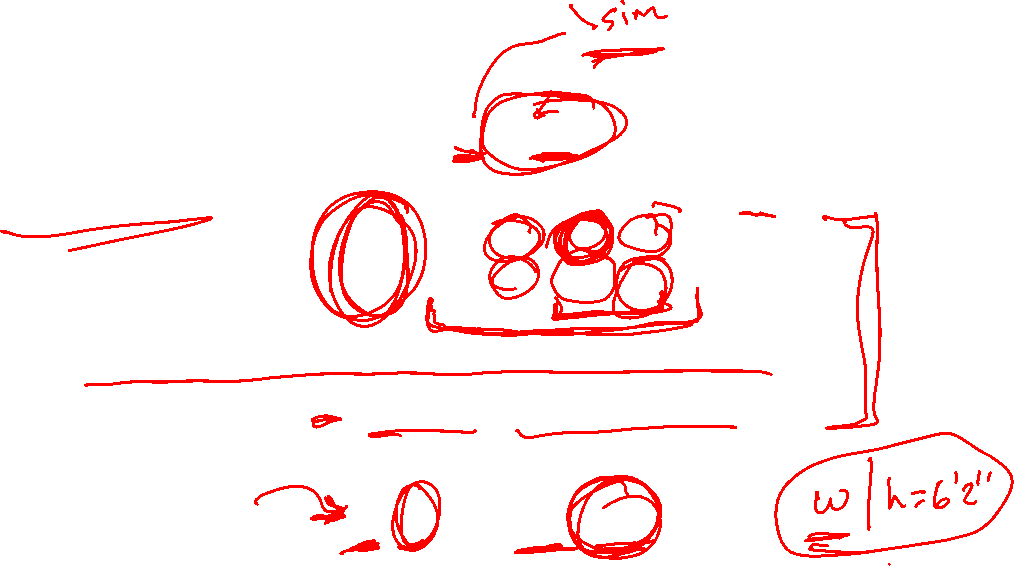 \sim
w | h=6'2"